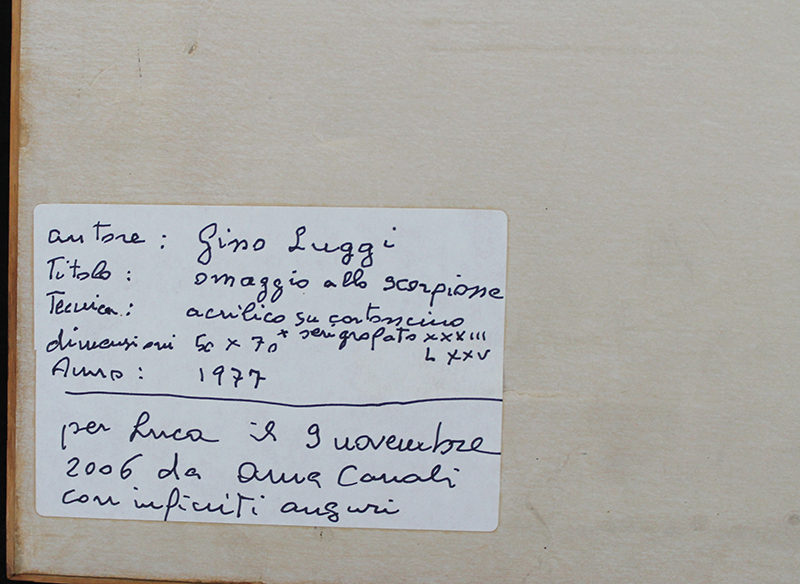 autore : Gino Luggi
Titolo : omaggio allo scorpione
Tecnica : acrilico su cartoncino
dimensioni 50 x 70 * serigrafato XXXIII
L XXV
Anno : 1977
per Luca il 9 novembre
2006 da Anna Canali
con infiniti auguri